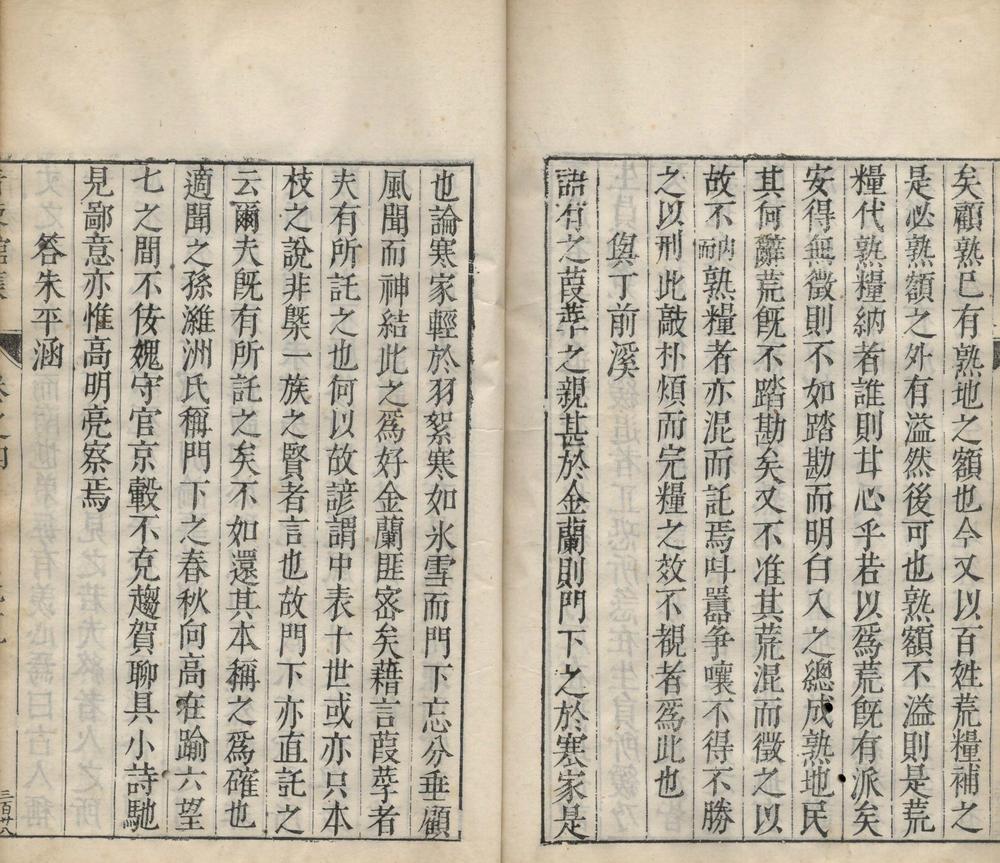 矣顧熟巳有熟地之額也今又以百姓荒糧補之
是必熟額之外有溢然後可也熟額不溢則是荒
糧代熟糧納者誰則甘心乎若以爲荒旣有派矣
安得無徵則不如踏勘而明白入之總成熟地民
其何辭荒旣不踏勘矣又不准其荒混而徵之以
故不納而熟糧者亦混而託焉呌嚣争嚷不得不勝
之以刑此敲朴煩而完糧之效不覩者爲此也
與丁前溪
語有之葭莩之親甚於金蘭則門下之於寒家是
也論寒家輕於羽絮寒如氷雪而門下忘分垂顧
風聞而神結此之爲好金蘭匪密矣藉言葭莩者
夫有所託之也何以故諺謂中表十世或亦只本
枝之說非槩一族之賢者言也故門下亦直託之
云爾夫旣有所託之矣不如還其本稱之爲確也
適聞之孫濰洲氏稱門下之春秋向高在踰六望
七之間不佞媿守官京轂不克趨賀聊具小詩馳
見鄙意亦惟高明亮察焉
答朱平涵
卷之四
三百廿八